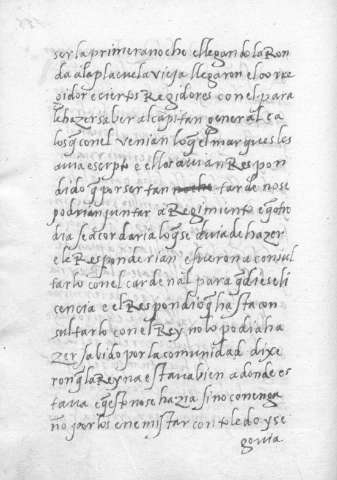 ser la primera noche e llegando la Ron
da a la plaçuela vieja llegaron el corre
gidor e ciertos Regidores con el para
le hazer saber al capitan general e a
los q̃ con el venian lo q̃ el marques los
avia escripto e ellos avian Respon
dido q̃ por ser tan noche tarde no se
podrian juntar a Regimiento e q̃ otro
dia se acordaria lo q̃ se avia de hazer
e le Responderian e fueron a consul
tarlo con el cardenal para q̃ diese li
cencia e el Respondio q̃ hasta con
sultarlo con el Rey no lo podia ha
zer sabido por la comunidad dixe
ron q̃ la Reyna estava bien adonde es
tava e q̃ esto no se hazia sino con enga
ño por los enemistar con toledo y se
govia